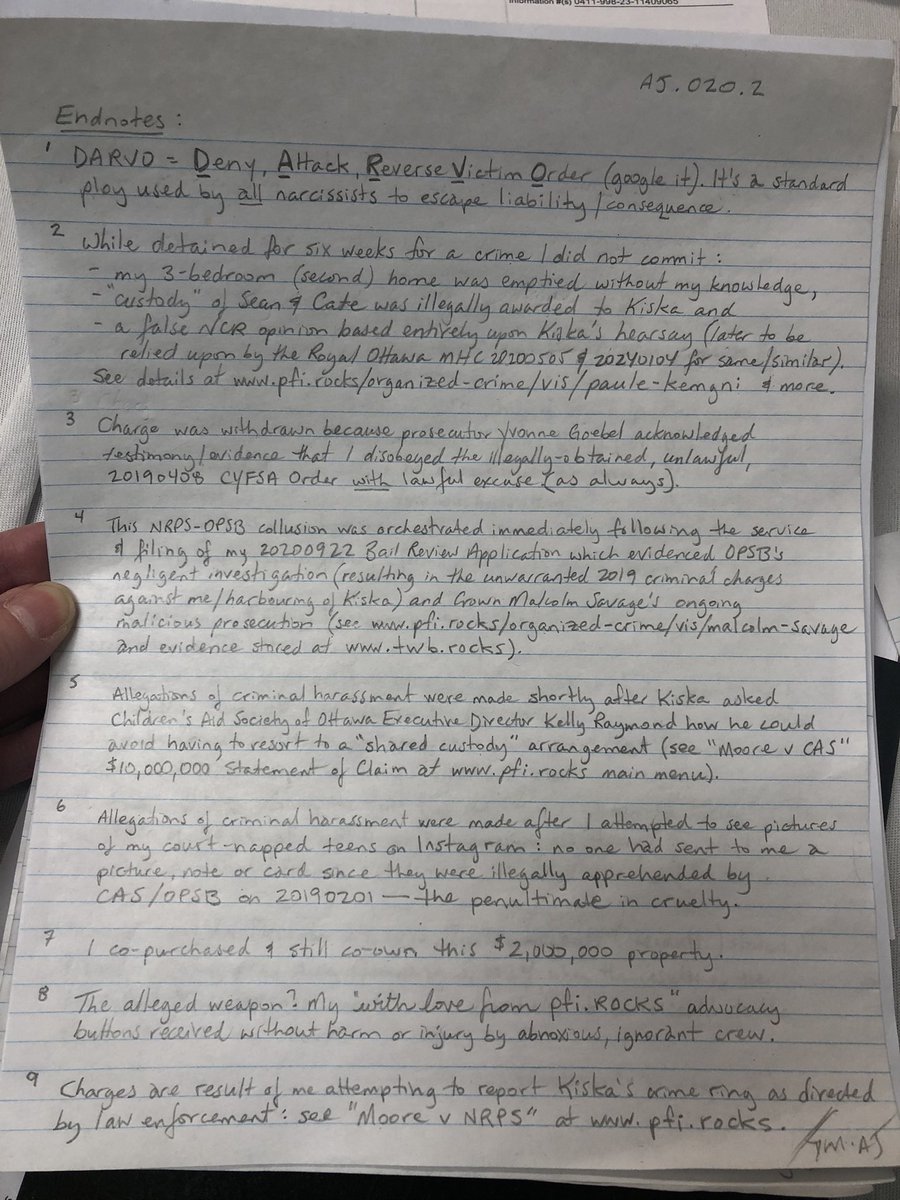 Information #(s) 0411-998-23-11409065
AJ.020.2
Endnotes:
1 DARVO = Deny, Attack, Reverse Victim Order (google it). It's a standard
ploy used by all narcissists to escape liability/consequence.
2 While detained for six weeks for a crime I did not commit:
- my 3-bedroom (second) home was emptied without my knowledge,
- "custody" of Sean & Cate was illegally awarded to Kiska and
- a false NCR opinion based entirely upon Kiska's hearsay (later to be
relied upon by the Royal Ottawa MHC 20200505 & 20240104 for same/similar).
See details at www.pfi.rocks/organized-crime/vis/paule-kemgni & more.
3 Charge was withdrawn because prosecutor Yvonne Goebel acknowledged
testimony/evidence that I disobeyed the illegally-obtained, unlawful,
20190408 CYFSA Order with lawful excuse (as always).
4 This NRPS-OPSB collusion was orchestrated immediately following the service
& filing of my 20200922 Bail Review Application which evidenced OPSB's
negligent investigation (resulting in the unwarranted 2019 criminal charges
against me/harbouring of Kiska) and Crown Malcolm Savage's ongoing
malicious prosecution (see www.pfi.rocks/organized-crime/vis/malcolm-savage
and evidence stored at www.twb.rocks).
5 Allegations of criminal harassment were made shortly after Kiska asked
Children's Aid Society of Ottawa Executive Director Kelly Raymond how he could
avoid having to resort to a "shared custody" arrangement (see "Moore v CAS"
$10,000,000 Statement of Claim at www.pfi.rocks main menu).
6 Allegations of criminal harassment were made after I attempted to see pictures
of my court-napped teens on Instagram: no one had sent to me a
picture, note or card since they were illegally apprehended by
CAS/OPSB on 20190201 — the penultimate in cruelty.
7 I co-purchased & still co-own this $2,000,000 property.
8 The alleged weapon? My "with love from pfi.ROCKS" advocacy
buttons received without harm or injury by abnoxious, ignorant crew.
9 Charges are result of me attempting to report Kiska's crime ring as directed
by law enforcement: see "Moore v NRPS" at www.pfi.rocks.